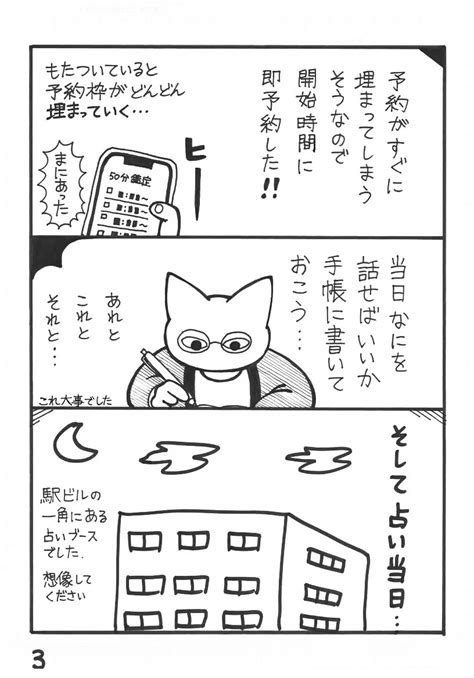 予約がすぐに
埋まってしまう
そうなので
開始時間に
即予約した!!
もたついていると
予約枠がどんどん
埋まっていく…
ヒーー
50分鑑定
まにあった
当日なにを
話せばいいか
手帳に書いて
おこう…
あれと
これと
それと…
これ大事でした
そして占い当日…
駅ビルの
一角にある
占いブース
でした.
想像して
ください
3